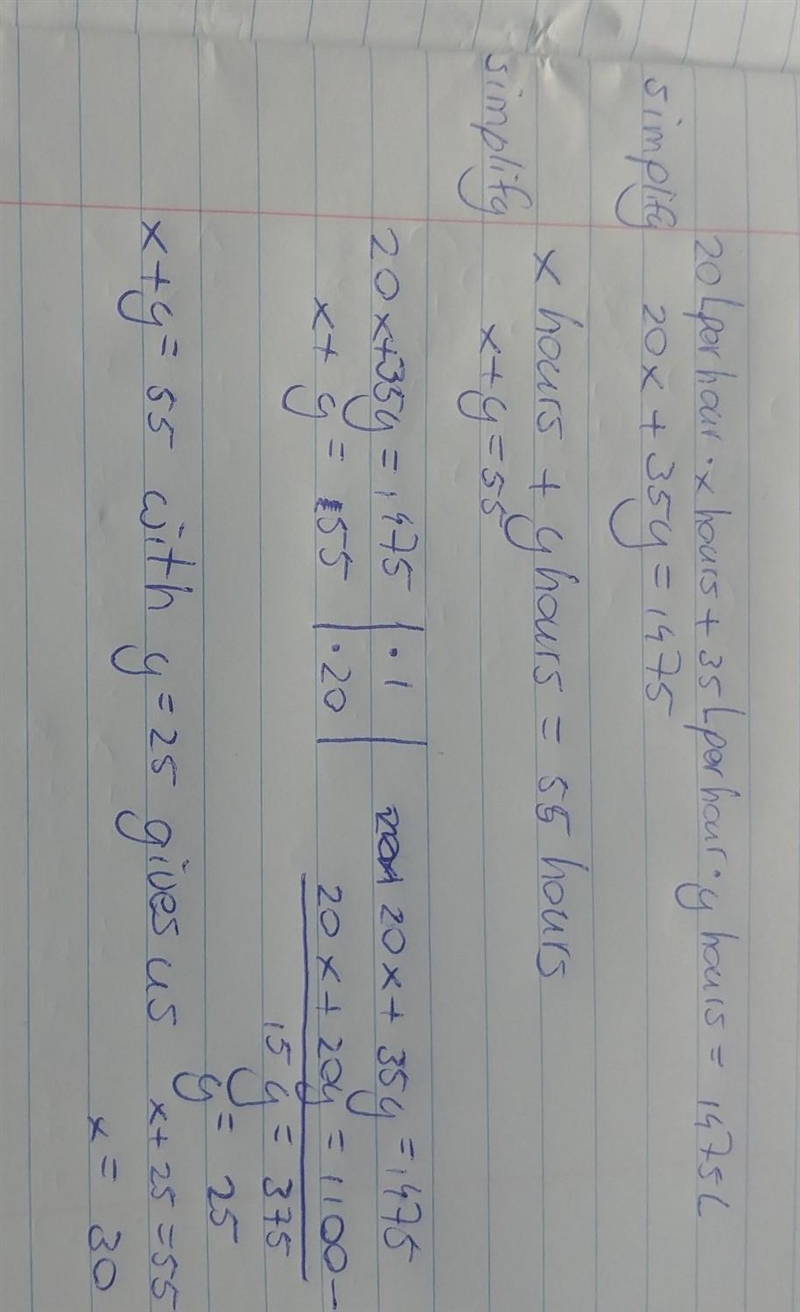 20 L per hour · x hours + 35 L per hour · y hours = 1475 L
simplify 20x + 35y = 1475
x hours + y hours = 55 hours
simplify x + y = 55
20x + 35y = 1475 | · 1 | 20x + 35y = 1475
x + y = 55 | · 20 | 20x + 20y = 1100 -
15y = 375
y = 25
x + y = 55 with y = 25 gives us x + 25 = 55
x = 30